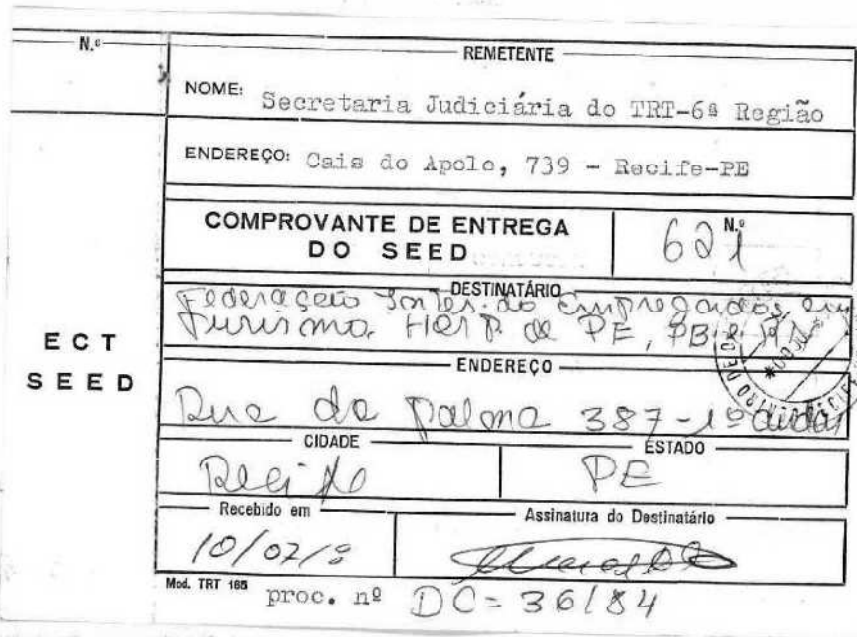 N.º
REMETENTE
NOME: Secretaria Judiciária do TRT-6ª Região
ENDEREÇO: Cais do Apolo, 739 - Recife-PE
COMPROVANTE DE ENTREGA
DO SEED
N.º
621
DESTINATÁRIO
Federação Inter. do Empregados em
Turismo Hosp de PE, PB e
ECT
SEED
ENDEREÇO
Rua da Palma 387-1º andar
CIDADE
Recife
ESTADO
PE
Recebido em
10/07/
Assinatura do Destinatário
Mod. TRT 165
proc. nº DC=36/84